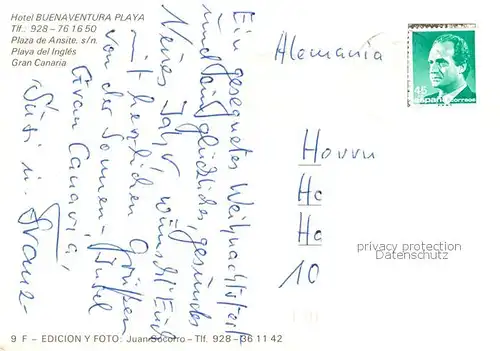 Hotel BUENAVENTURA PLAYA
Tlf.: 928 – 76 16 50
Plaza de Ansite, s/n.
Playa del Inglés
Gran Canaria
Ein gesegnetes Weihnachtsfest
und ein glückliches, gesundes
Neues Jahr wünscht Euch
mit herzlichen Grüßen
von der Sonnen-Insel
Gran Canaria,
Susi u. Franz-
Alemania
45
españa correos
Herrn
Ha
Ha
10
privacy protection
Datenschutz
9 F – EDICION Y FOTO: Juan Socorro – Tlf. 928 – 36 11 42